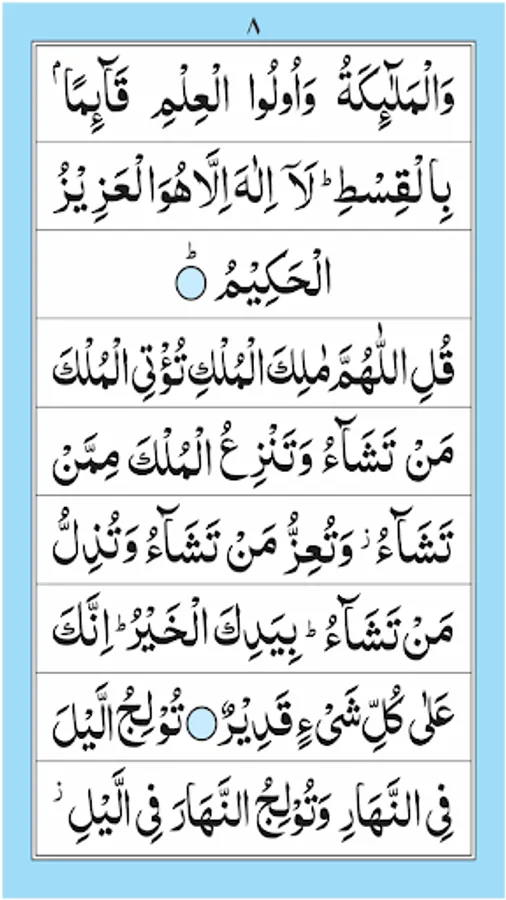 ٨
وَالْمَلٰٓئِكَةُ وَاُولُوا الْعِلْمِ قَآئِمًاۢ
بِالْقِسْطِ ؕ لَآ اِلٰهَ اِلَّا هُوَ الْعَزِيْزُ
الْحَكِيْمُ ؕ ○
قُلِ اللّٰهُمَّ مٰلِكَ الْمُلْكِ تُؤْتِي الْمُلْكَ
مَنْ تَشَآءُ وَتَنْزِعُ الْمُلْكَ مِمَّنْ
تَشَآءُ ز وَتُعِزُّ مَنْ تَشَآءُ وَتُذِلُّ
مَنْ تَشَآءُ ؕ بِيَدِكَ الْخَيْرُ ؕ اِنَّكَ
عَلٰى كُلِّ شَيْءٍ قَدِيْرٌ ○ تُوْلِجُ الَّيْلَ
فِي النَّهَارِ وَتُوْلِجُ النَّهَارَ فِي الَّيْلِ ز